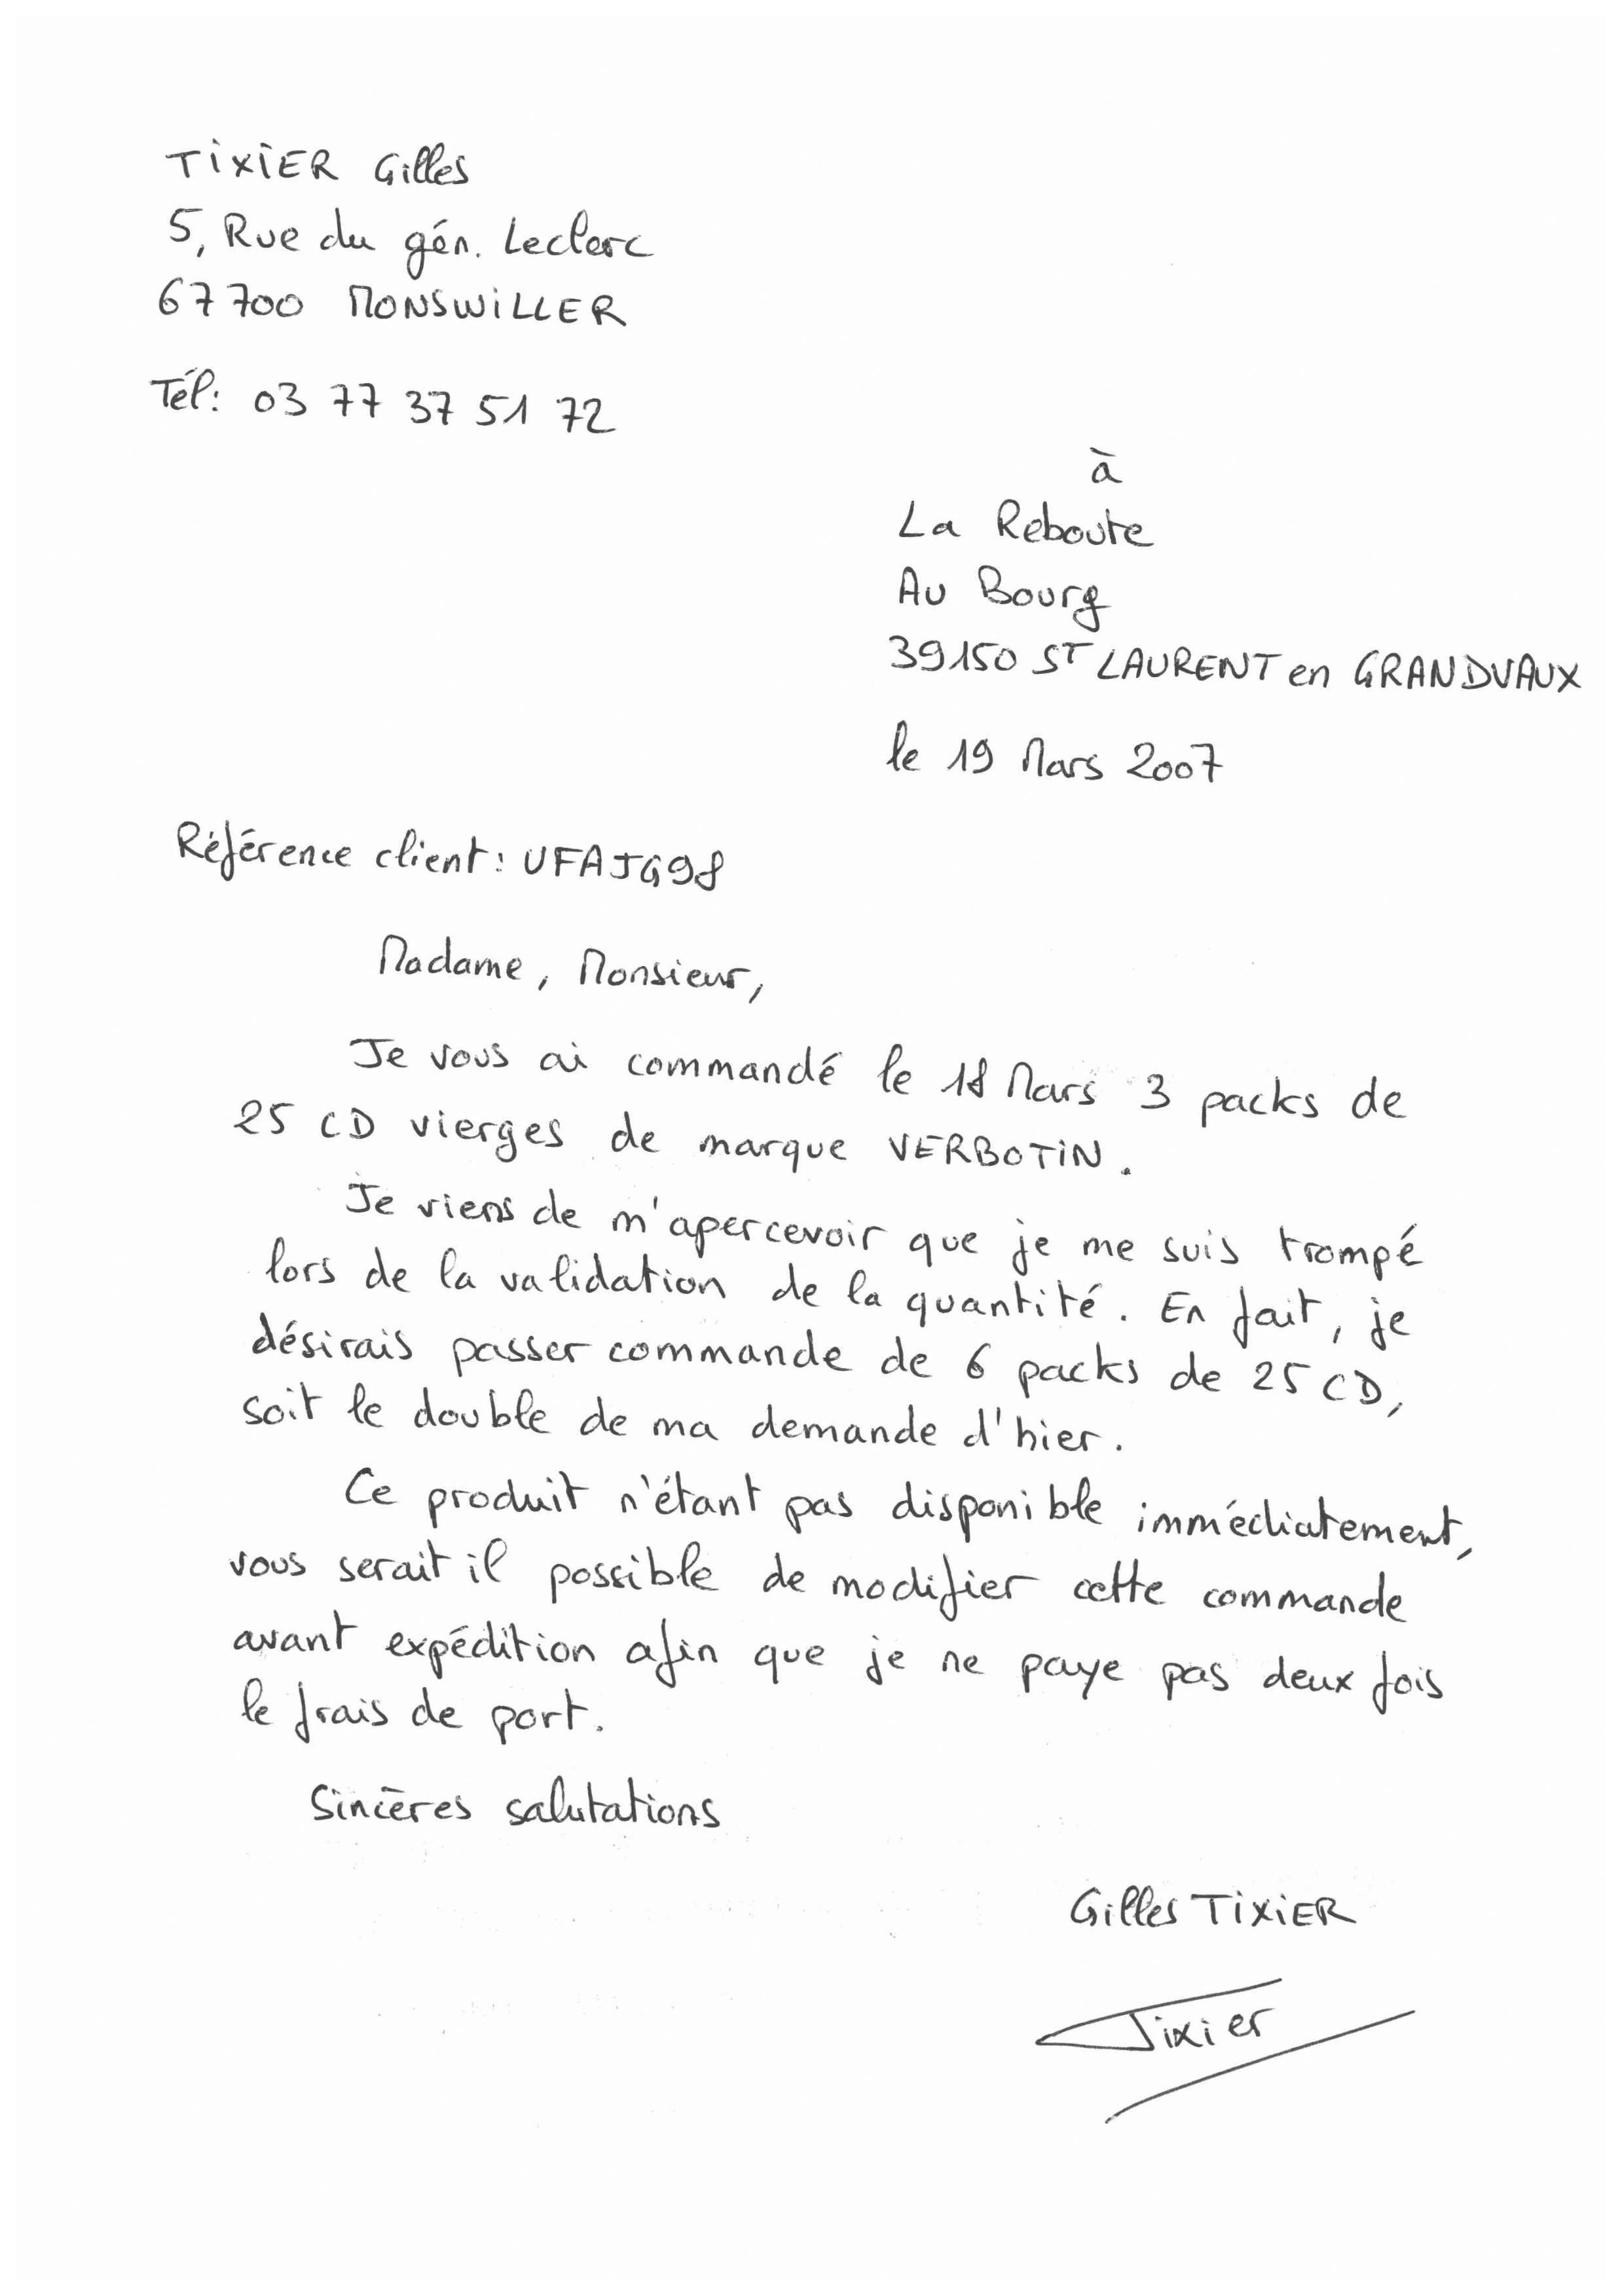 TIXIER Gilles
5, Rue du gén. Leclerc
67700 MONSWILLER
Tél: 03 77 37 51 72
à
La Reboute
Au Bourg
39150 ST LAURENT en GRANDVAUX
le 19 Mars 2007
Référence client: UFAJG98
Madame, Monsieur,
Je vous ai commandé le 18 Mars 3 packs de
25 CD vierges de marque VERBOTIN.
Je viens de m'apercevoir que je me suis trompé
lors de la validation de la quantité. En fait, je
désirais passer commande de 6 packs de 25 CD,
soit le double de ma demande d'hier.
Ce produit n'étant pas disponible immédiatement,
vous serait il possible de modifier cette commande
avant expédition afin que je ne paye pas deux fois
le frais de port.
Sincères salutations
Gilles TIXIER
Tixier